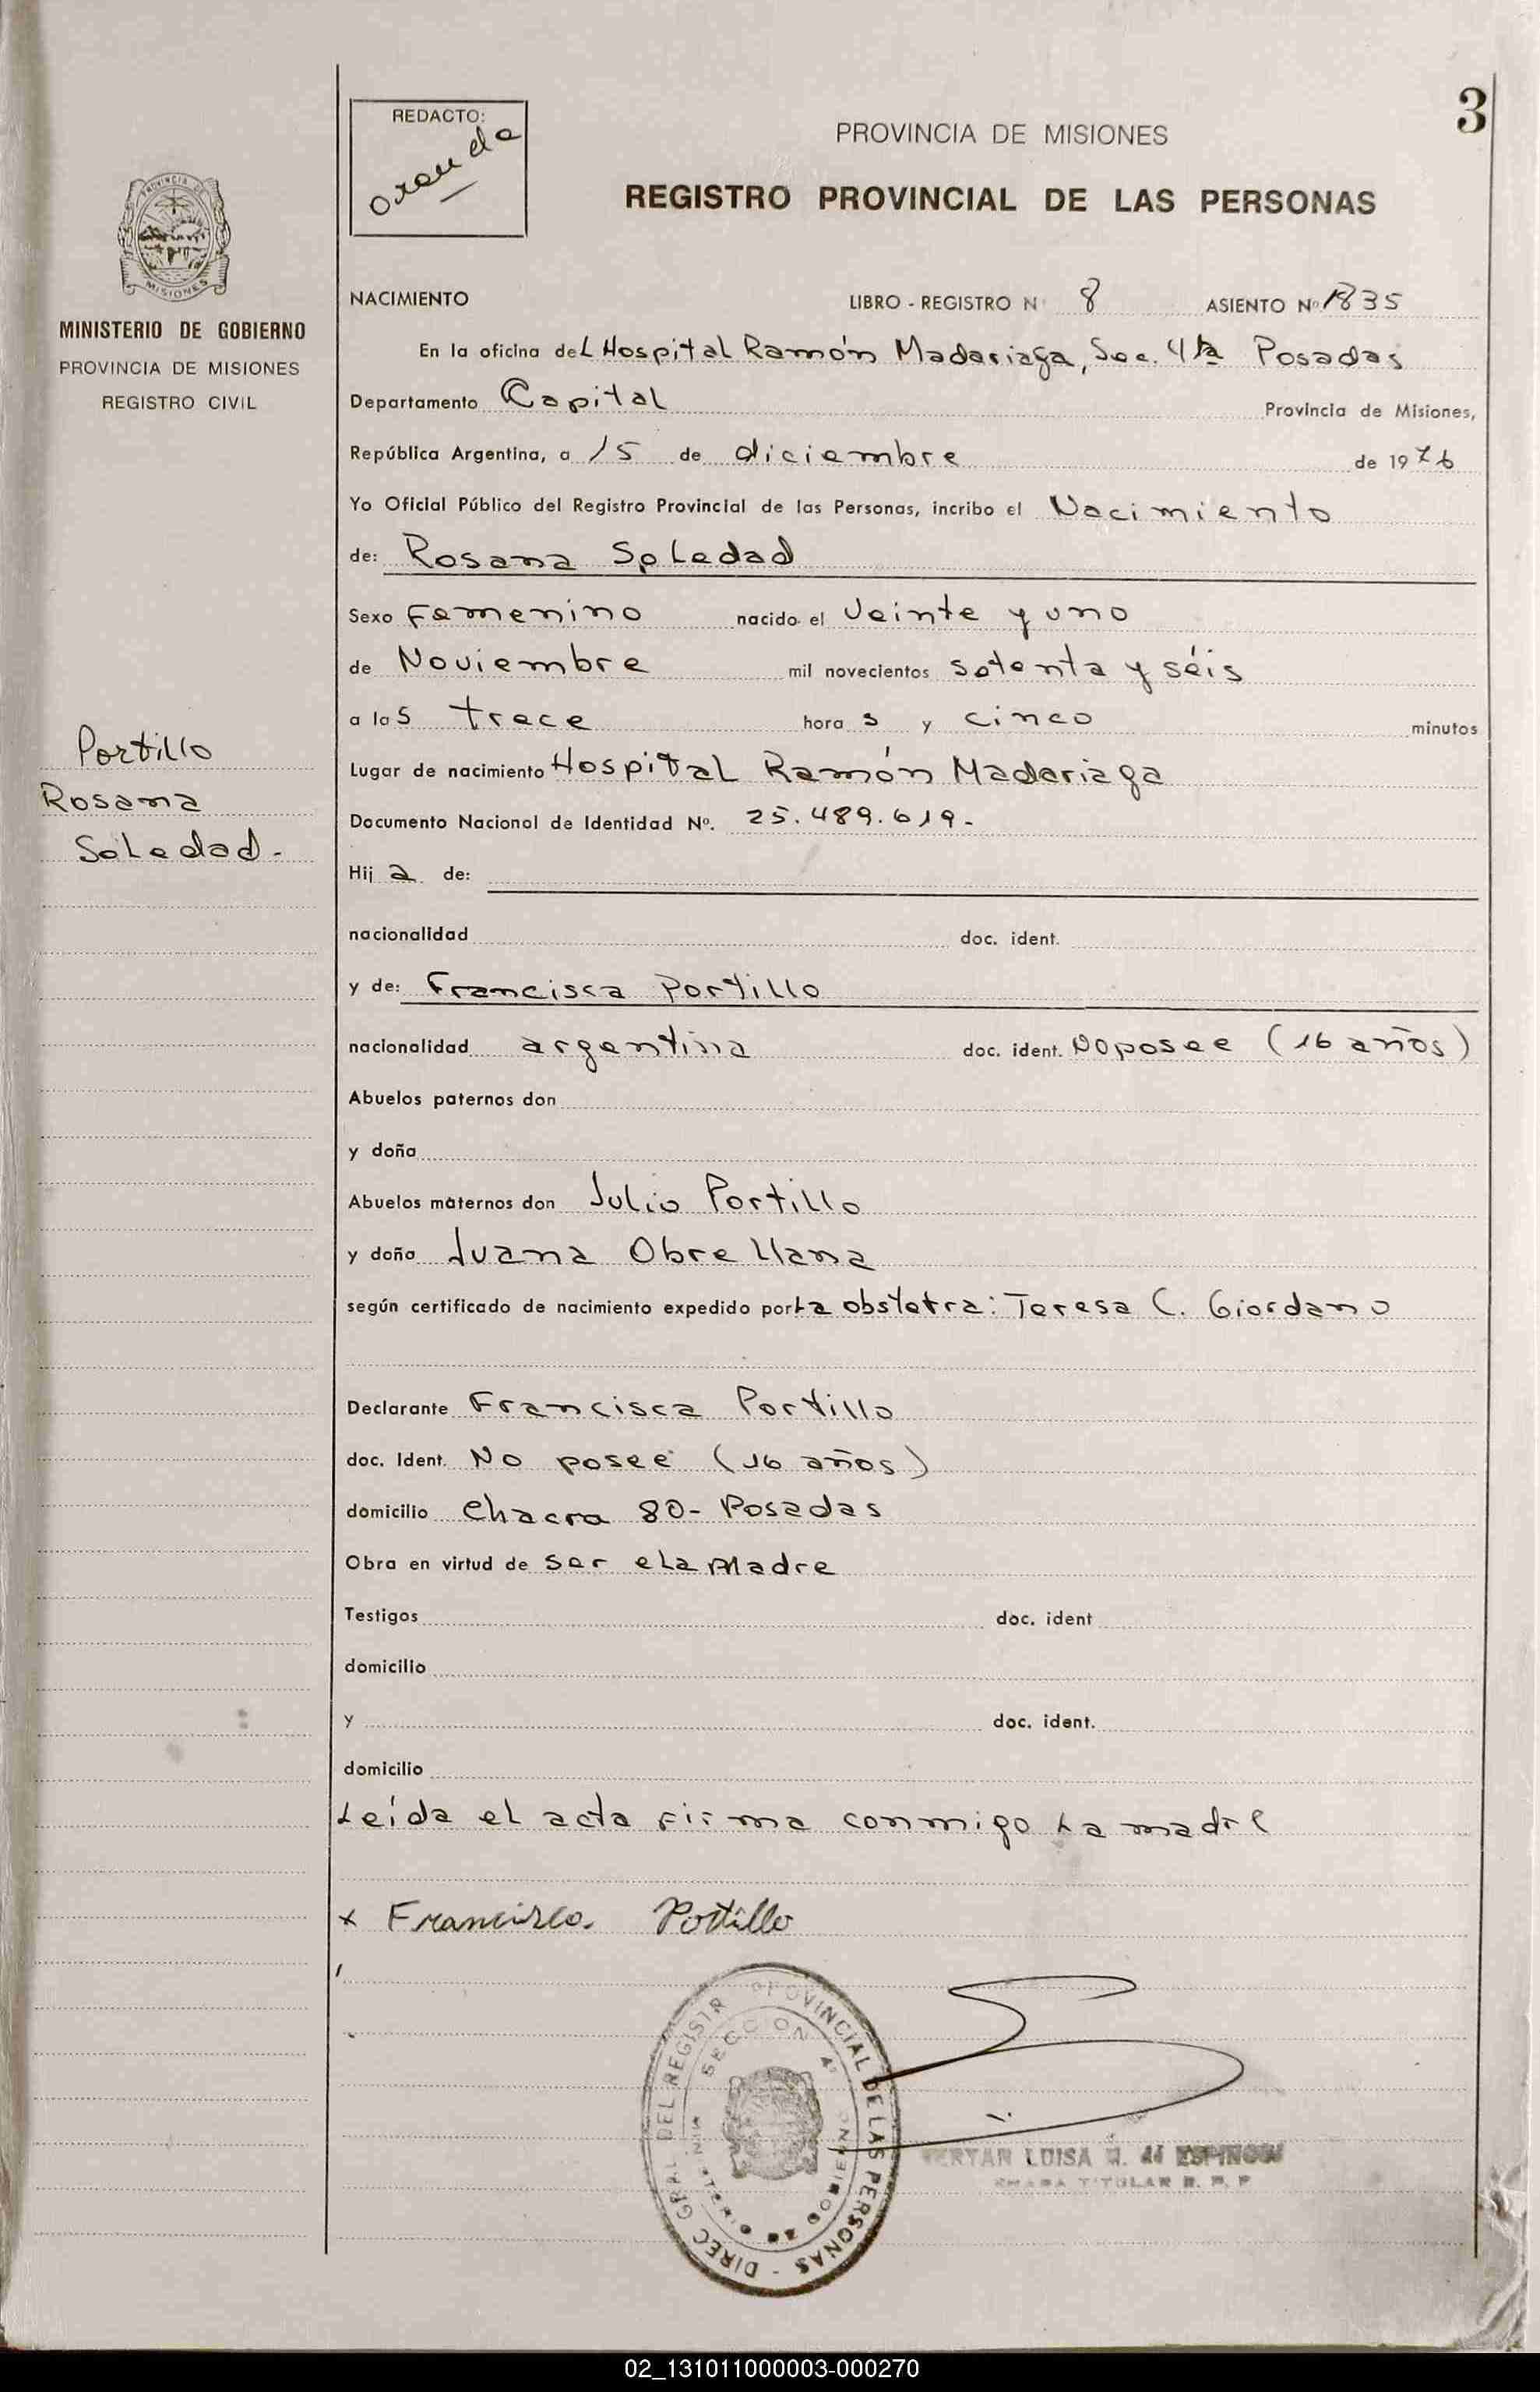 3
REDACTO:
PROVINCIA DE MISIONES
REGISTRO PROVINCIAL DE LAS PERSONAS
PROVINCIA DE
MISIONES
MINISTERIO DE GOBIERNO
PROVINCIA DE MISIONES
REGISTRO CIVIL
NACIMIENTO LIBRO - REGISTRO N° 8 ASIENTO Nº 1835
En la oficina deL Hospital Ramón Madariaga, Sec. 4ta Posadas
Departamento Capital Provincia de Misiones,
República Argentina, a 15 de diciembre de 1976
Yo Oficial Público del Registro Provincial de las Personas, incribo el Nacimiento
de: Rosana Soledad
Sexo Femenino nacido el Veinte y uno
de Noviembre mil novecientos setenta y séis
a las trece horas y cinco minutos
Lugar de nacimiento Hospital Ramón Madariaga
Documento Nacional de Identidad Nº. 25.489.619.-
Portillo
Rosana
Soledad.-
Hija de:
nacionalidad doc. ident.
y de: Francisca Portillo
nacionalidad argentina doc. ident. No posee (16 años)
Abuelos paternos don
y doña
Abuelos maternos don Julio Portillo
y doña Juana Obrellana
según certificado de nacimiento expedido por La obstetra: Teresa C. Giordano
Declarante Francisca Portillo
doc. Ident. No posee (16 años)
domicilio Chacra 80- Posadas
Obra en virtud de ser la Madre
Testigos doc. ident
domicilio
y doc. ident.
domicilio
Leída el acta firma conmigo La madre
x Francisca Portillo
DIREC GRAL DEL REGISTR PROVINCIAL DE LAS PERSONAS -
SECCION 4ª
MINISTERIO DE GOBIERNO
LUISA
TITULAR R. P. P
02_131011000003-000270